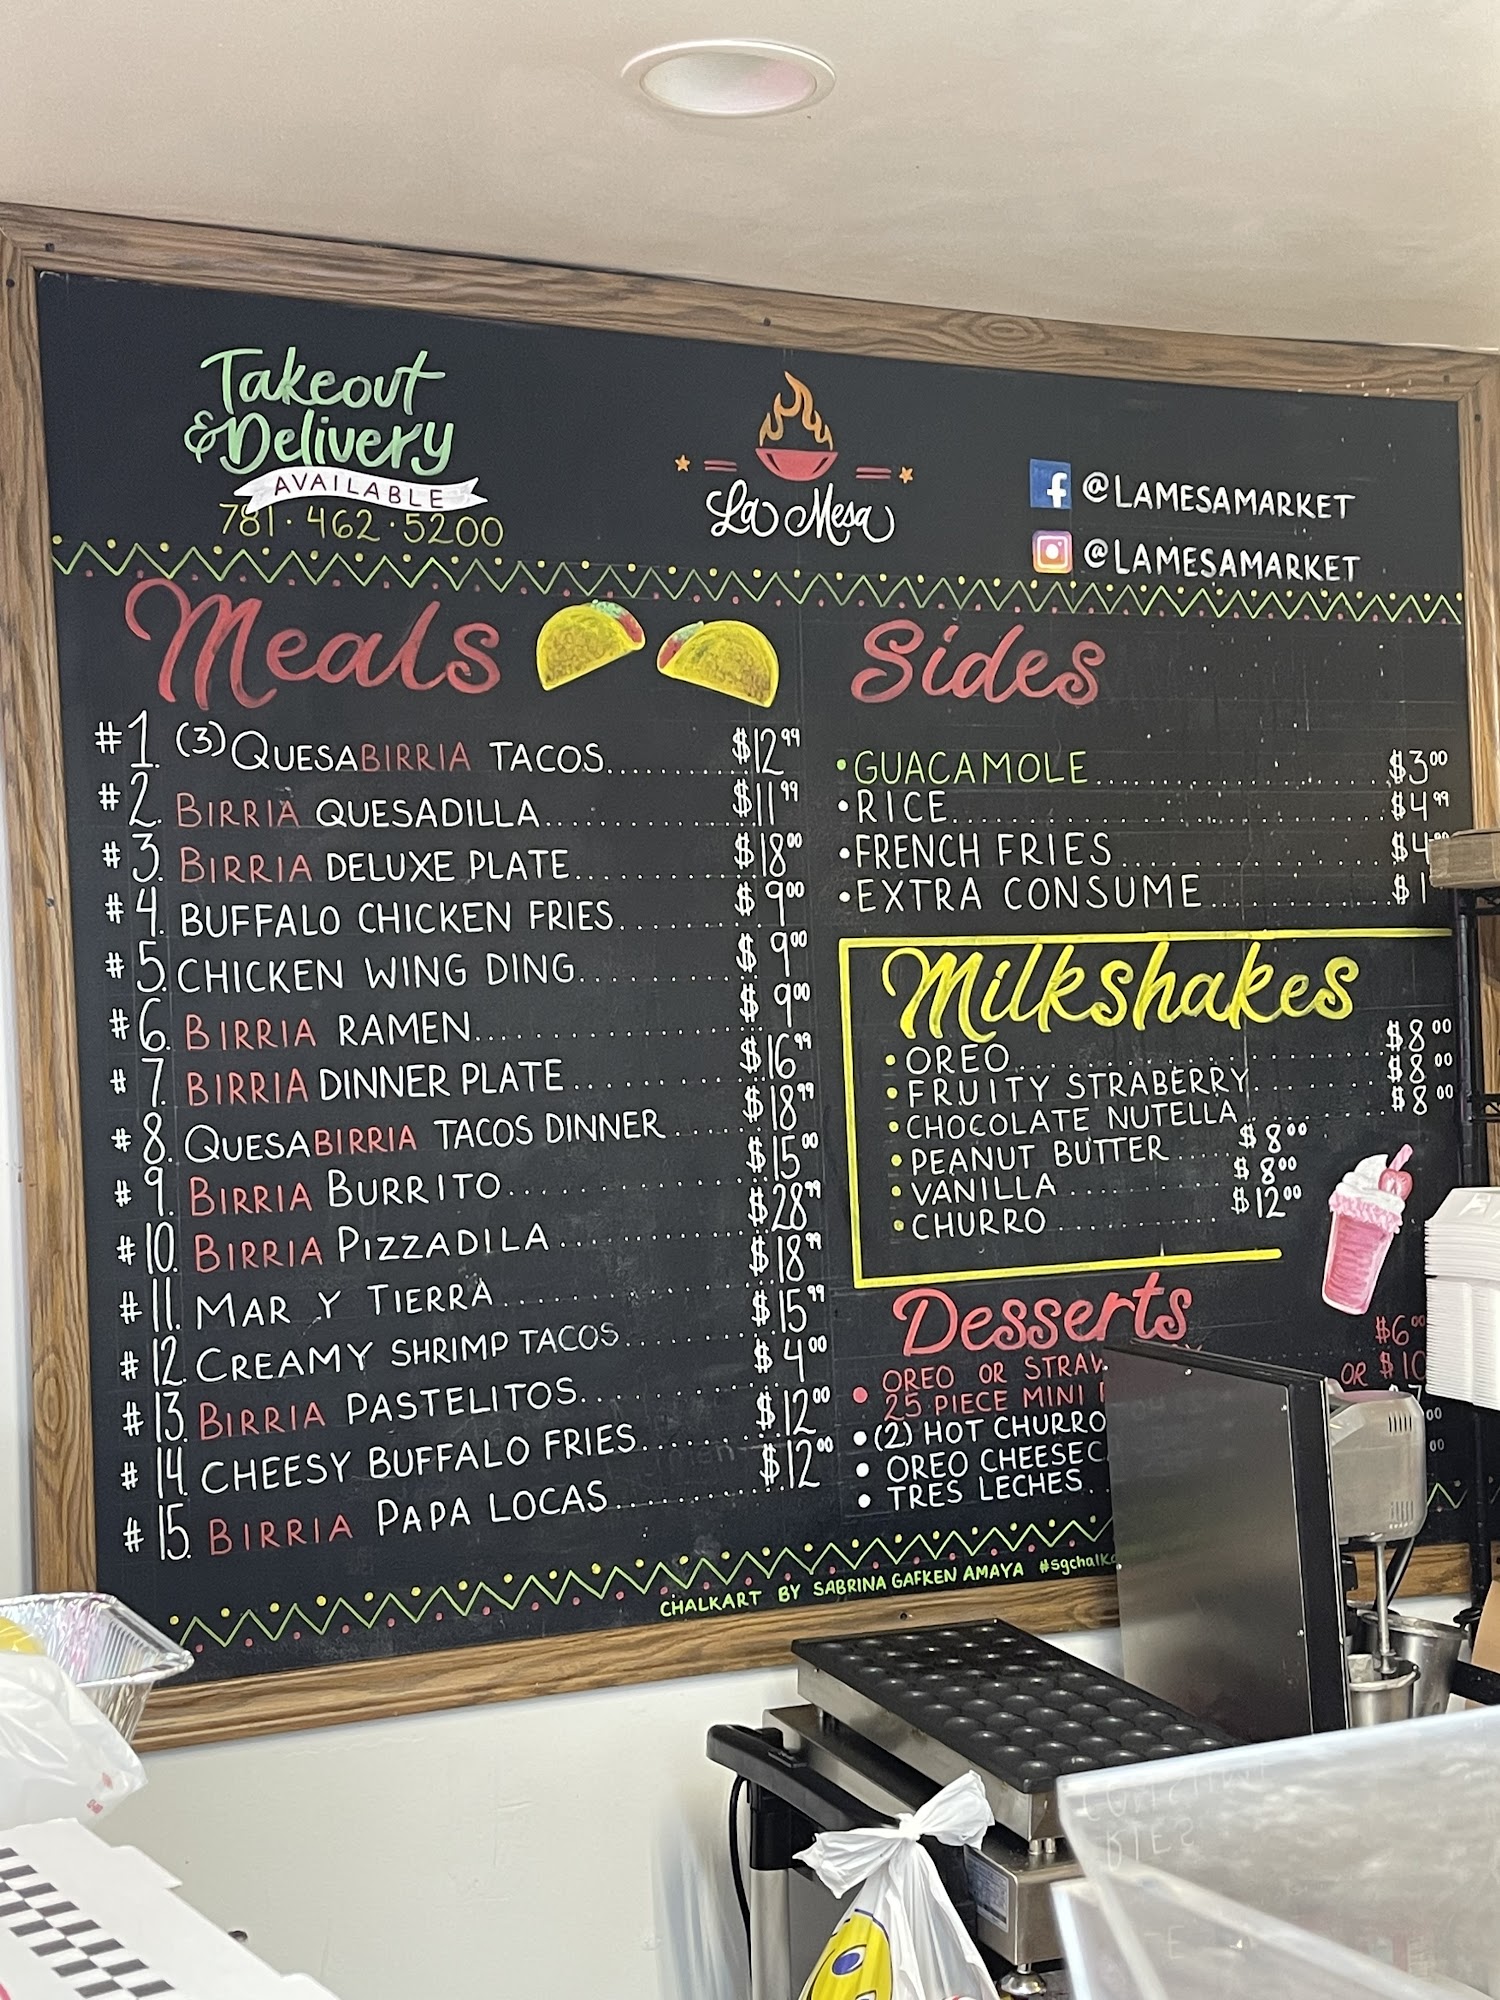 Takeout
& Delivery
AVAILABLE
781·462·5200
La Mesa
@LAMESAMARKET
@LAMESAMARKET
Meals
#1. (3) QUESABIRRIA TACOS $12.99
#2. BIRRIA QUESADILLA $11.99
#3. BIRRIA DELUXE PLATE $18.00
#4. BUFFALO CHICKEN FRIES $9.00
#5. CHICKEN WING DING $9.00
#6. BIRRIA RAMEN $9.00
#7. BIRRIA DINNER PLATE $16.99
#8. QUESABIRRIA TACOS DINNER $18.99
#9. BIRRIA BURRITO $15.00
#10. BIRRIA PIZZADILA $28.99
#11. MAR Y TIERRA $18.99
#12. CREAMY SHRIMP TACOS $15.99
#13. BIRRIA PASTELITOS $4.00
#14. CHEESY BUFFALO FRIES $12.00
#15. BIRRIA PAPA LOCAS $12.00
Sides
• GUACAMOLE $3.00
• RICE $4.99
• FRENCH FRIES $4
• EXTRA CONSUME $1
Milkshakes
• OREO $8.00
• FRUITY STRABERRY $8.00
• CHOCOLATE NUTELLA $8.00
• PEANUT BUTTER $8.00
• VANILLA $8.00
• CHURRO $12.00
Desserts
• OREO OR $6.00
25 PIECE MINI OR $10
• (2) HOT CHURRO
• OREO
• TRES LECHES
CHALKART BY SABRINA GAFKEN AMAYA